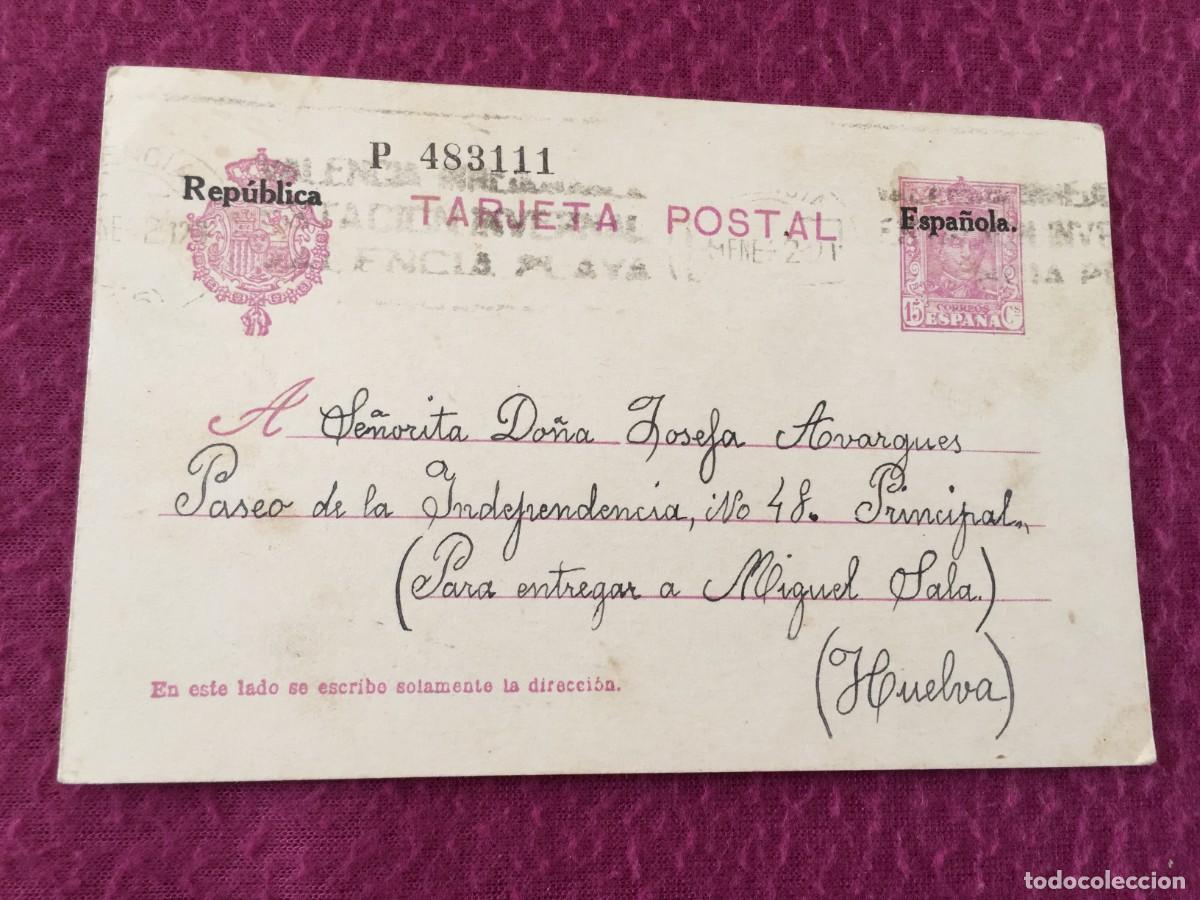 P 483111
República
Española.
TARJETA POSTAL
VALENCIA
INVERNAL
VALENCIA PLAYA
15 CORREOS Cs
ESPAÑA
A Señorita Doña Josefa Avargues
Paseo de la Independencia, No 48. Principal.,
(Para entregar a Miguel Sala.)
(Huelva)
En este lado se escribe solamente la dirección.
todocoleccion